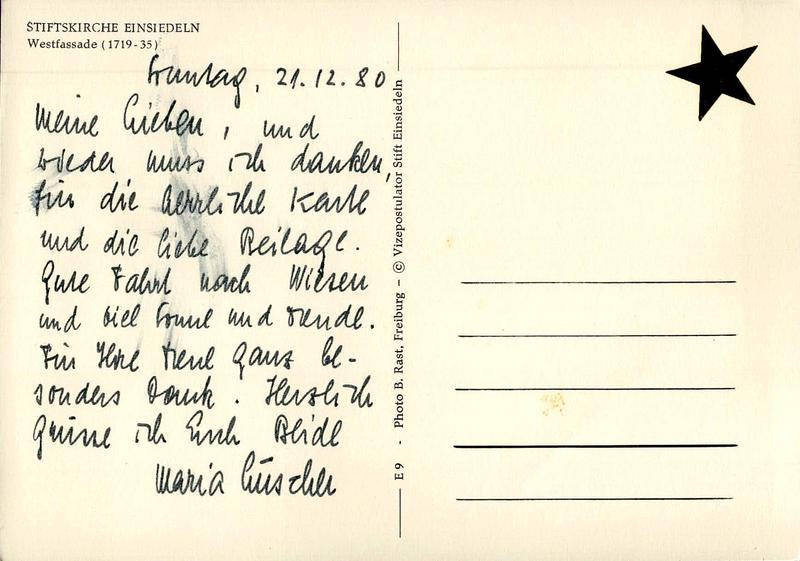 STIFTSKIRCHE EINSIEDELN
Westfassade (1719-35)
Sonntag, 21.12.80
Meine Lieben, und
wieder muss ich danken,
für die herrliche Karte
und die liebe Beilage.
Gute Fahrt nach Wiesen
und viel Sonne und Freude.
Für Ihre Treue ganz be-
sonders Dank. Herzlich
grüsse ich Euch Beide
Maria
E 9 - Photo B. Rast, Freiburg - © Vizepostulator Stift Einsiedeln